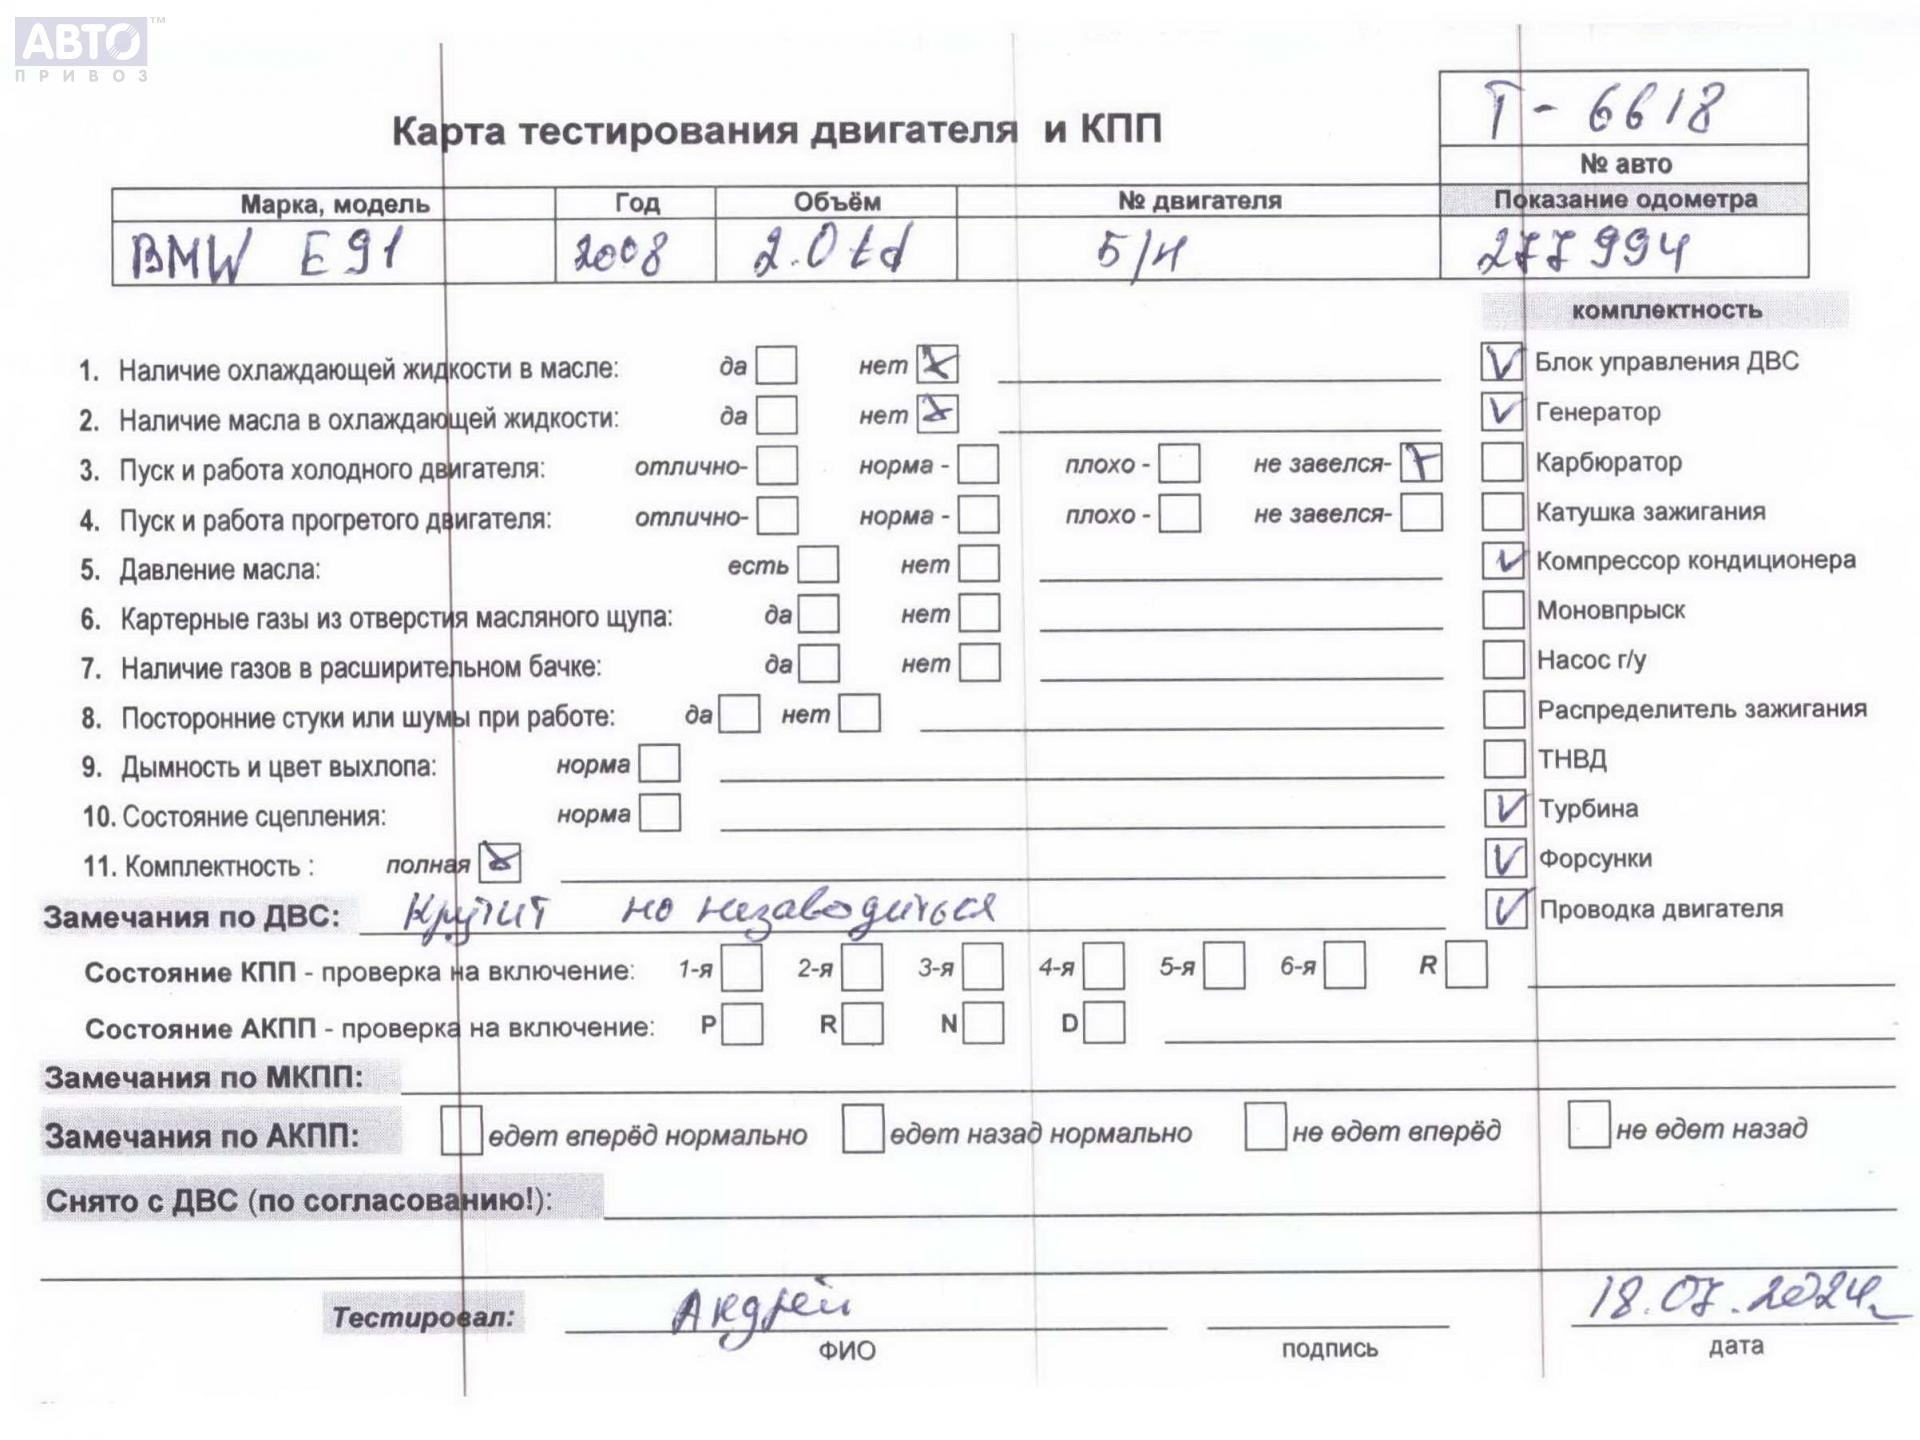 АВТО™
ПРИВОЗ
Т - 6618
Карта тестирования двигателя и КПП
№ авто
Марка, модель Год Объём № двигателя Показание одометра
BMW E91 2008 2.0td Б/Н 277994
комплектность
1. Наличие охлаждающей жидкости в масле: да нет Блок управления ДВС
2. Наличие масла в охлаждающей жидкости: да нет Генератор
3. Пуск и работа холодного двигателя: отлично- норма - плохо - не завелся- Карбюратор
4. Пуск и работа прогретого двигателя: отлично- норма - плохо - не завелся- Катушка зажигания
5. Давление масла: есть нет Компрессор кондиционера
6. Картерные газы из отверстия масляного щупа: да нет Моновпрыск
7. Наличие газов в расширительном бачке: да нет Насос г/у
8. Посторонние стуки или шумы при работе: да нет Распределитель зажигания
9. Дымность и цвет выхлопа: норма ТНВД
10. Состояние сцепления: норма Турбина
11. Комплектность : полная Форсунки
Замечания по ДВС: Крутит но незаводиться Проводка двигателя
Состояние КПП - проверка на включение: 1-я 2-я 3-я 4-я 5-я 6-я R
Состояние АКПП - проверка на включение: P R N D
Замечания по МКПП:
Замечания по АКПП: едет вперёд нормально едет назад нормально не едет вперёд не едет назад
Снято с ДВС (по согласованию!):
Тестировал: Андрей 18.07.2024г
ФИО подпись дата